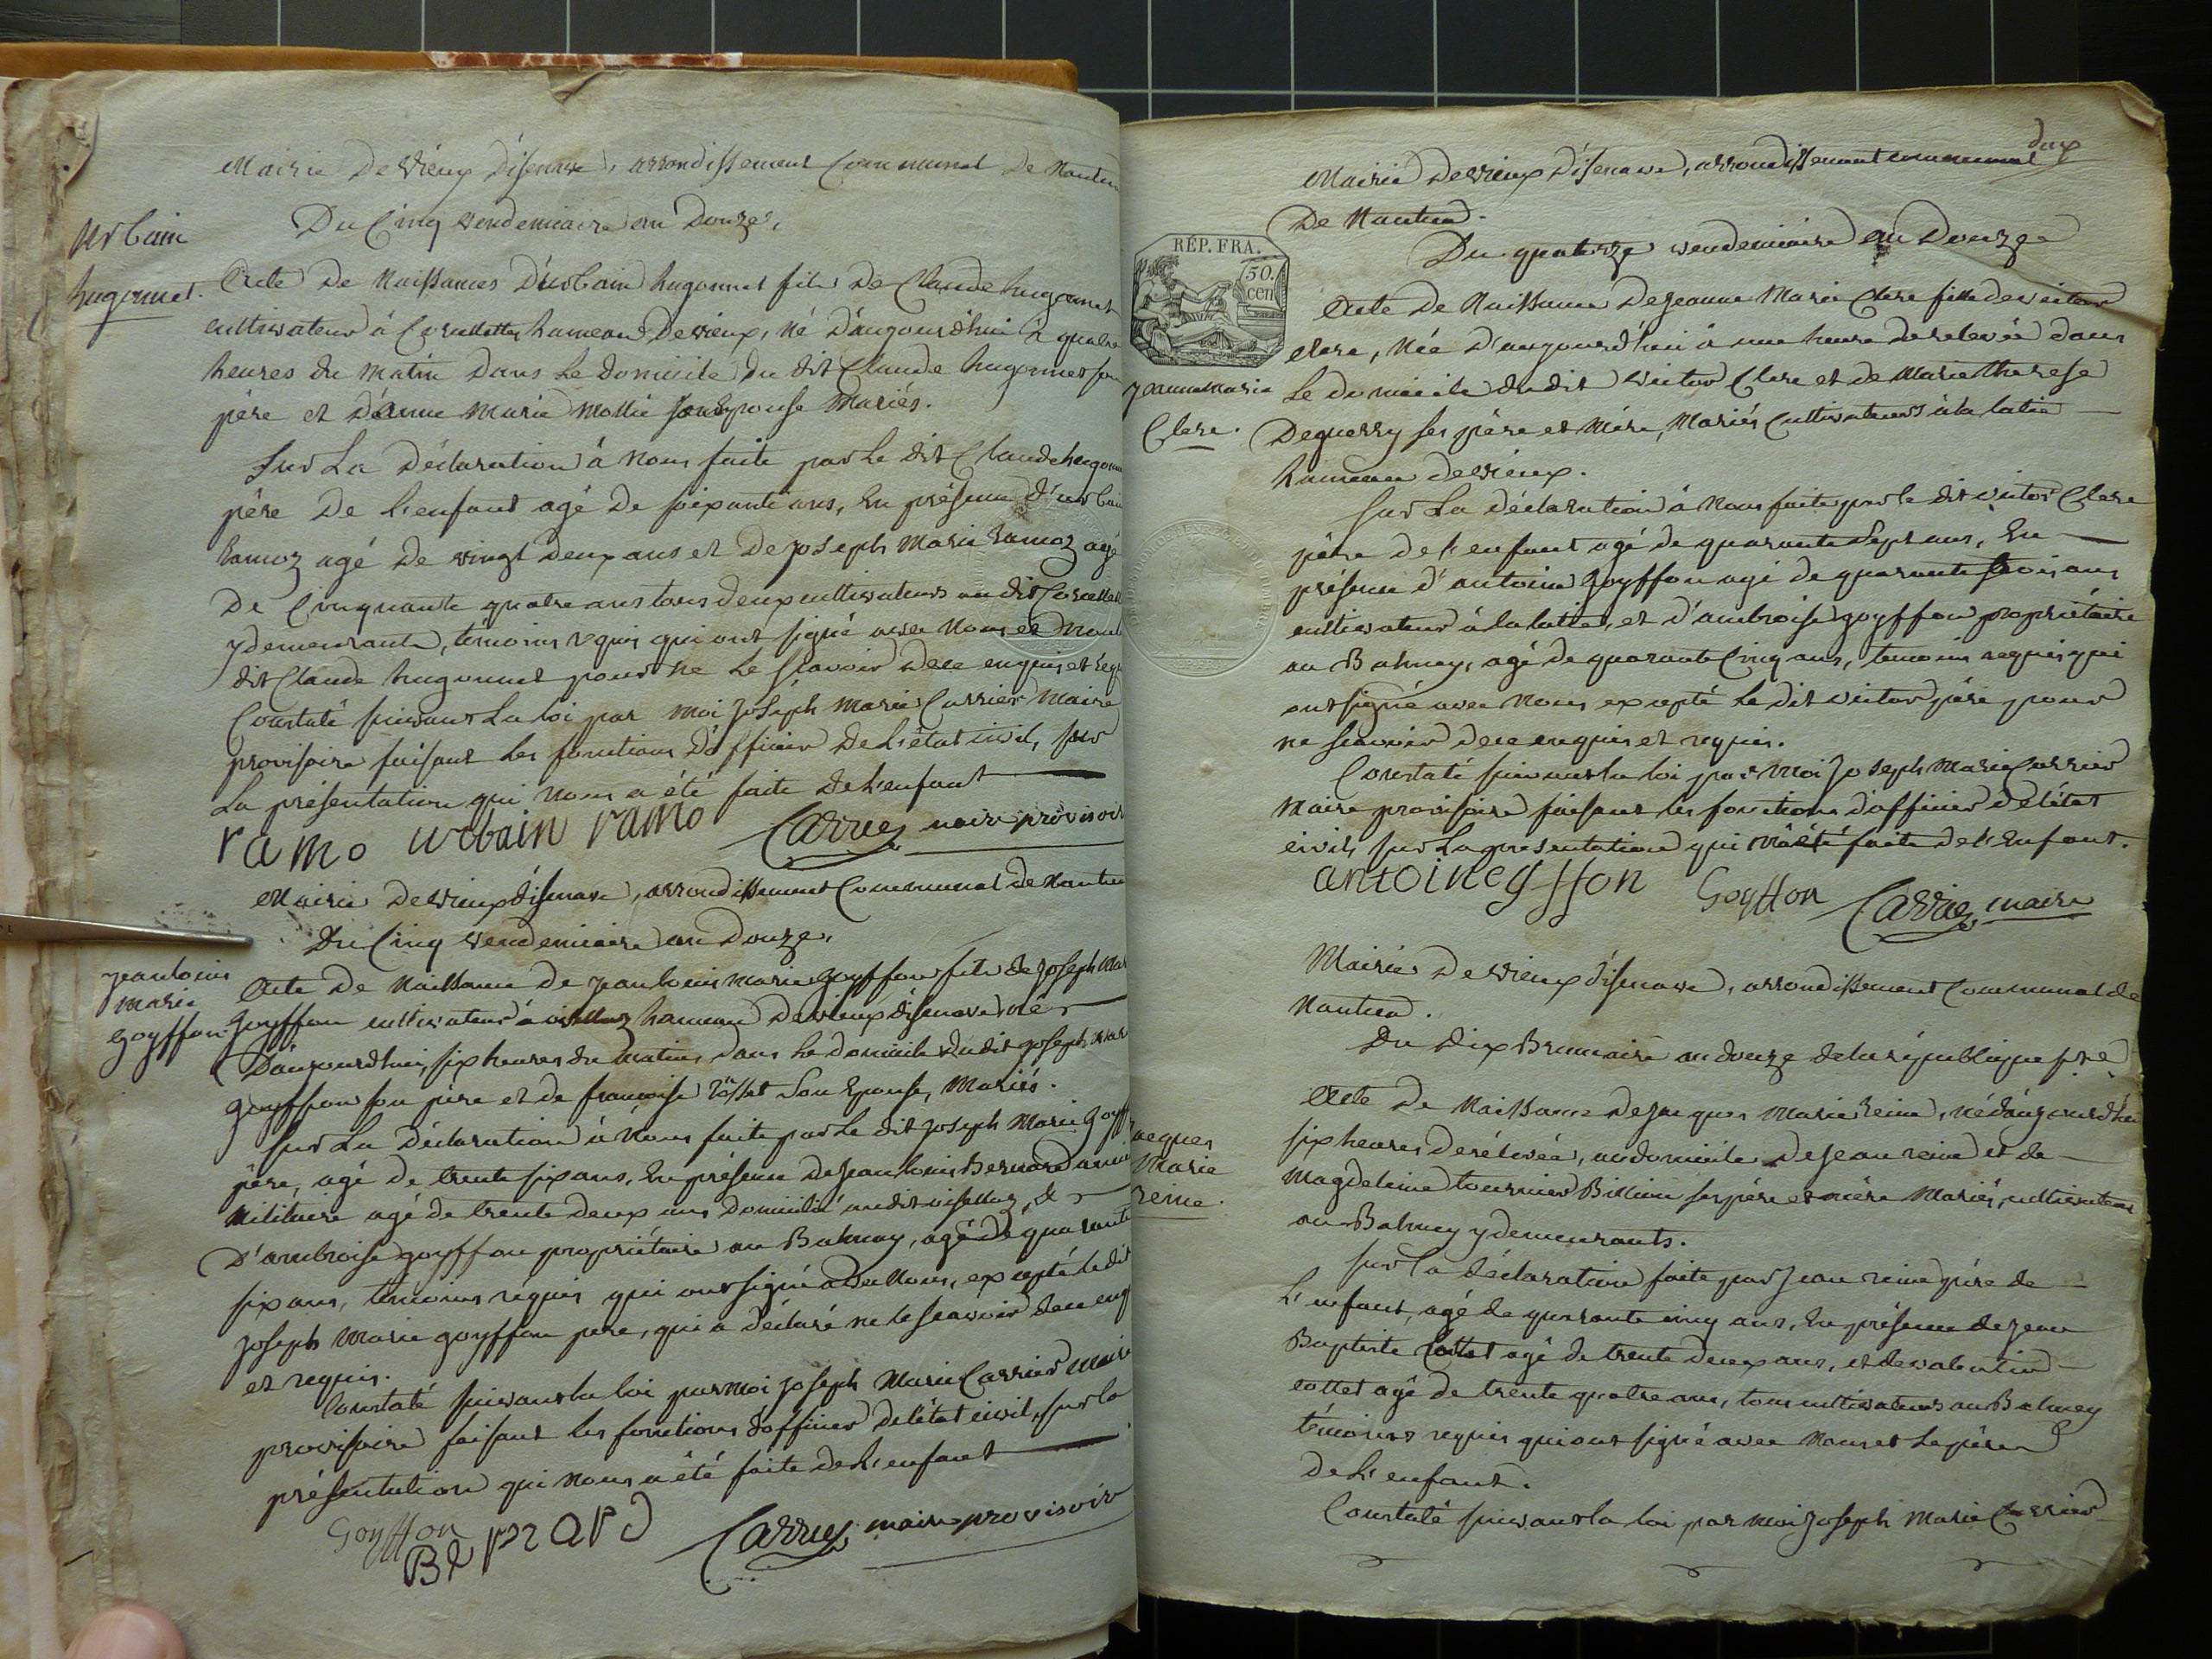 Mairie de vieux d'isenave, arrondissement Communal de Nantua
Du Cinq vendemiaire an Douze.
Urbain
hugonnet.
Acte De Naissances D'urbain hugonnet fils De Claude hugonnet
cultivateur à Corcelette hameau De vieux, né D'aujourd'hui à quatre
heures du matin Dans Le domicile du dit Claude hugonnet son
père et D'anne marie mollie son Epouse Mariés.
Sur La Déclaration à Nous faite par Le dit Claude hugonn
père De L'enfant agé De soixante ans, En présence d'urbain
Ramoz agé de vingt deux ans et De Joseph Marie Ramoz agé
De Cinquante quatre ans tous deux cultivateurs au dit
y demeurants, témoins requis qui ont signé avec Nous et non le
dit Claude hugonnet pour ne Le sçavoir De ce enquis et req
Constaté suivant La loi par moi Joseph Marie Carrier Maire
provisoire faisant Les fonctions D'officier De L'état civil, sur
La présentation qui Nous a été faite De L'enfant
ramo urbain ramo Carrier maire provisoir
Mairie De vieux d'isenave, arrondissement Communal de Nantua
Du Cinq vendemiaire an Douze.
Jean louis
marie
goyffon
Acte De Naissance de Jean louis marie goyffon fils de Joseph Mar
goyffon cultivateur à hameau De vieux d'isenave né
D'aujourdhui, six heures du matin, Dans Le domicile du dit Joseph mar
goyffon son père et de françoise Rosset Son Epouse, Mariés.
Sur La Déclaration à Nous faite par Le dit Joseph Marie goyff
père, agé de trente six ans, En présence De Jean louis Bernard ancien
Militaire agé de trente deux ans domicilié au dit et
D'ambroise goyffon propriétaire au Balmay, agé de quarante
six ans, témoins requis qui ont signé avec Nous, excepté le dit
Joseph marie goyffon pere, qui a déclaré ne le sçavoir de ce enq
et requis.
Constaté suivant la loi par moi Joseph Marie Carrier Maire
provisoire faisant les fonctions d'officier de l'état civil, sur la
présentation qui Nous a été faite de L'enfant
Goyffon Carrier maire provisoir
deux
Mairie De vieux D'isenave, arrondissement communal
De Nantua.
RÉP. FRA.
50.
cen
Du quatorze vendemiaire an Douze
Jeanne Marie
Clere.
Acte De Naissance De Jeanne Marie Clere fille de victor
clere, Née D'aujourd'hui à une heure de relevée dans
Le domicile du dit victor Clere et de Marie therese
Deguerry ses père et mère, Mariés Cultivateurs à la latie
hameau de vieux.
Sur La déclaration à Nous faite par le dit victor Clere
père de l'enfant agé de quarante Sept ans, En
présence d'antoine Goyffon agé de quarante trois ans
cultivateur à la latie, et d'ambroise goyffon propriétaire
au Balmay, agé de quarante Cinq ans, témoins requis qui
ont signé avec Nous excepté Le dit victor père, pour
ne sçavoir de ce enquis et requis.
Constaté suivant la loi par Moi Joseph Marie Carrier
Maire provisoire faisant les fonctions d'officier de l'état
civil, sur La présentation qui m'a été faite de l'Enfant.
antoinegffon Goyffon Carrier maire
Mairie De vieux d'isenave, arrondissement Communal de
Nantua.
Du Dix Brumaire an douze de la république frse
Jacques
Marie
reine.
Acte De Naissance De Jacques Marie reine, né d'aujourd'hui
six heures de relevée, au domicile De Jean reine et de
Magdeleine tournier Billion ses père et mère Mariés, cultivateurs
au Balmay y demeurants.
Sur La déclaration faite par Jean reine père de
L'enfant, agé de quarante cinq ans, En présence de Jean
Baptiste Cottet agé de trente deux ans, et de valentin
cottet agé de trente quatre ans, tous cultivateurs au Balmay
témoins requis qui ont signé avec Nous et Le père
de L'enfant.
Constaté suivant la loi par moi Joseph Marie Carrier